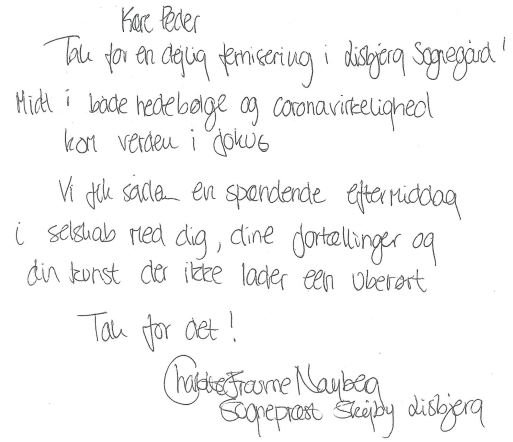 Kære Peder
Tak for en dejlig fernisering i Lisbjerg Sognegård!
Midt i både hedebølge og coronavirkelighed
kom verden i fokus
Vi fik sådan en spændende eftermiddag
i selskab med dig, dine fortællinger og
din kunst der ikke lader een uberørt
Tak for det!
Charlotte
Sognepræst Skejby Lisbjerg